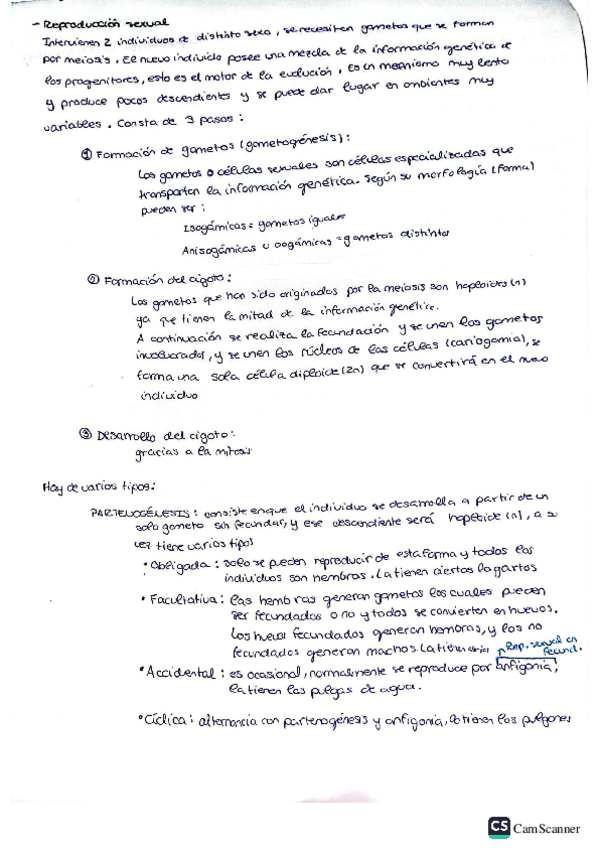 - Reproducción sexual
Intervienen 2 individuos de distinto sexo, se necesiten gametos que se forman
por meiosis. El nuevo individuo posee una mezcla de la información genética de
los progenitores, esto es el motor de la evolución. Es un mecanismo muy lento
y produce pocos descendientes y se puede dar lugar en ambientes muy
variables. Consta de 3 pasos:
① Formación de gametos (gametogénesis):
Los gametos o células sexuales son células especializadas que
transportan la información genética. Según su morfología (forma)
pueden ser:
Isogámicos = gametos iguales
Anisogámicas u oogámicas = gametos distintos
② Formación del cigoto:
Los gametos que han sido originados por la meiosis son haploides (n)
ya que tienen la mitad de la información genética.
A continuación se realiza la fecundación y se unen los gametos
involucrados, y se unen los núcleos de las células (cariogamia), se
forma una sola célula diploide (2n) que se convertirá en el nuevo
individuo
③ Desarrollo del cigoto:
gracias a la mitosis
Hay de varios tipos:
PARTENOGÉNESIS: consiste en que el individuo se desarrolla a partir de un
solo gameto sin fecundar, y ese descendiente será haploide (n), a su
vez tiene varios tipos
• Obligada: solo se pueden reproducir de esta forma y todos los
individuos son hembras. La tienen ciertos lagartos
• Facultativa: las hembras generan gametos los cuales pueden
ser fecundados o no y todos se convierten en huevos.
Los huevos fecundados generan hembras, y los no
fecundados generan machos. La tienen varios
Rep. sexual con
fecund.
• Accidental: es ocasional, normalmente se reproduce por anfigonia,
la tienen las pulgas de agua.
• Cíclica: alternancia con partenogénesis y anfigonia, lo tienen los pulgones
CS CamScanner